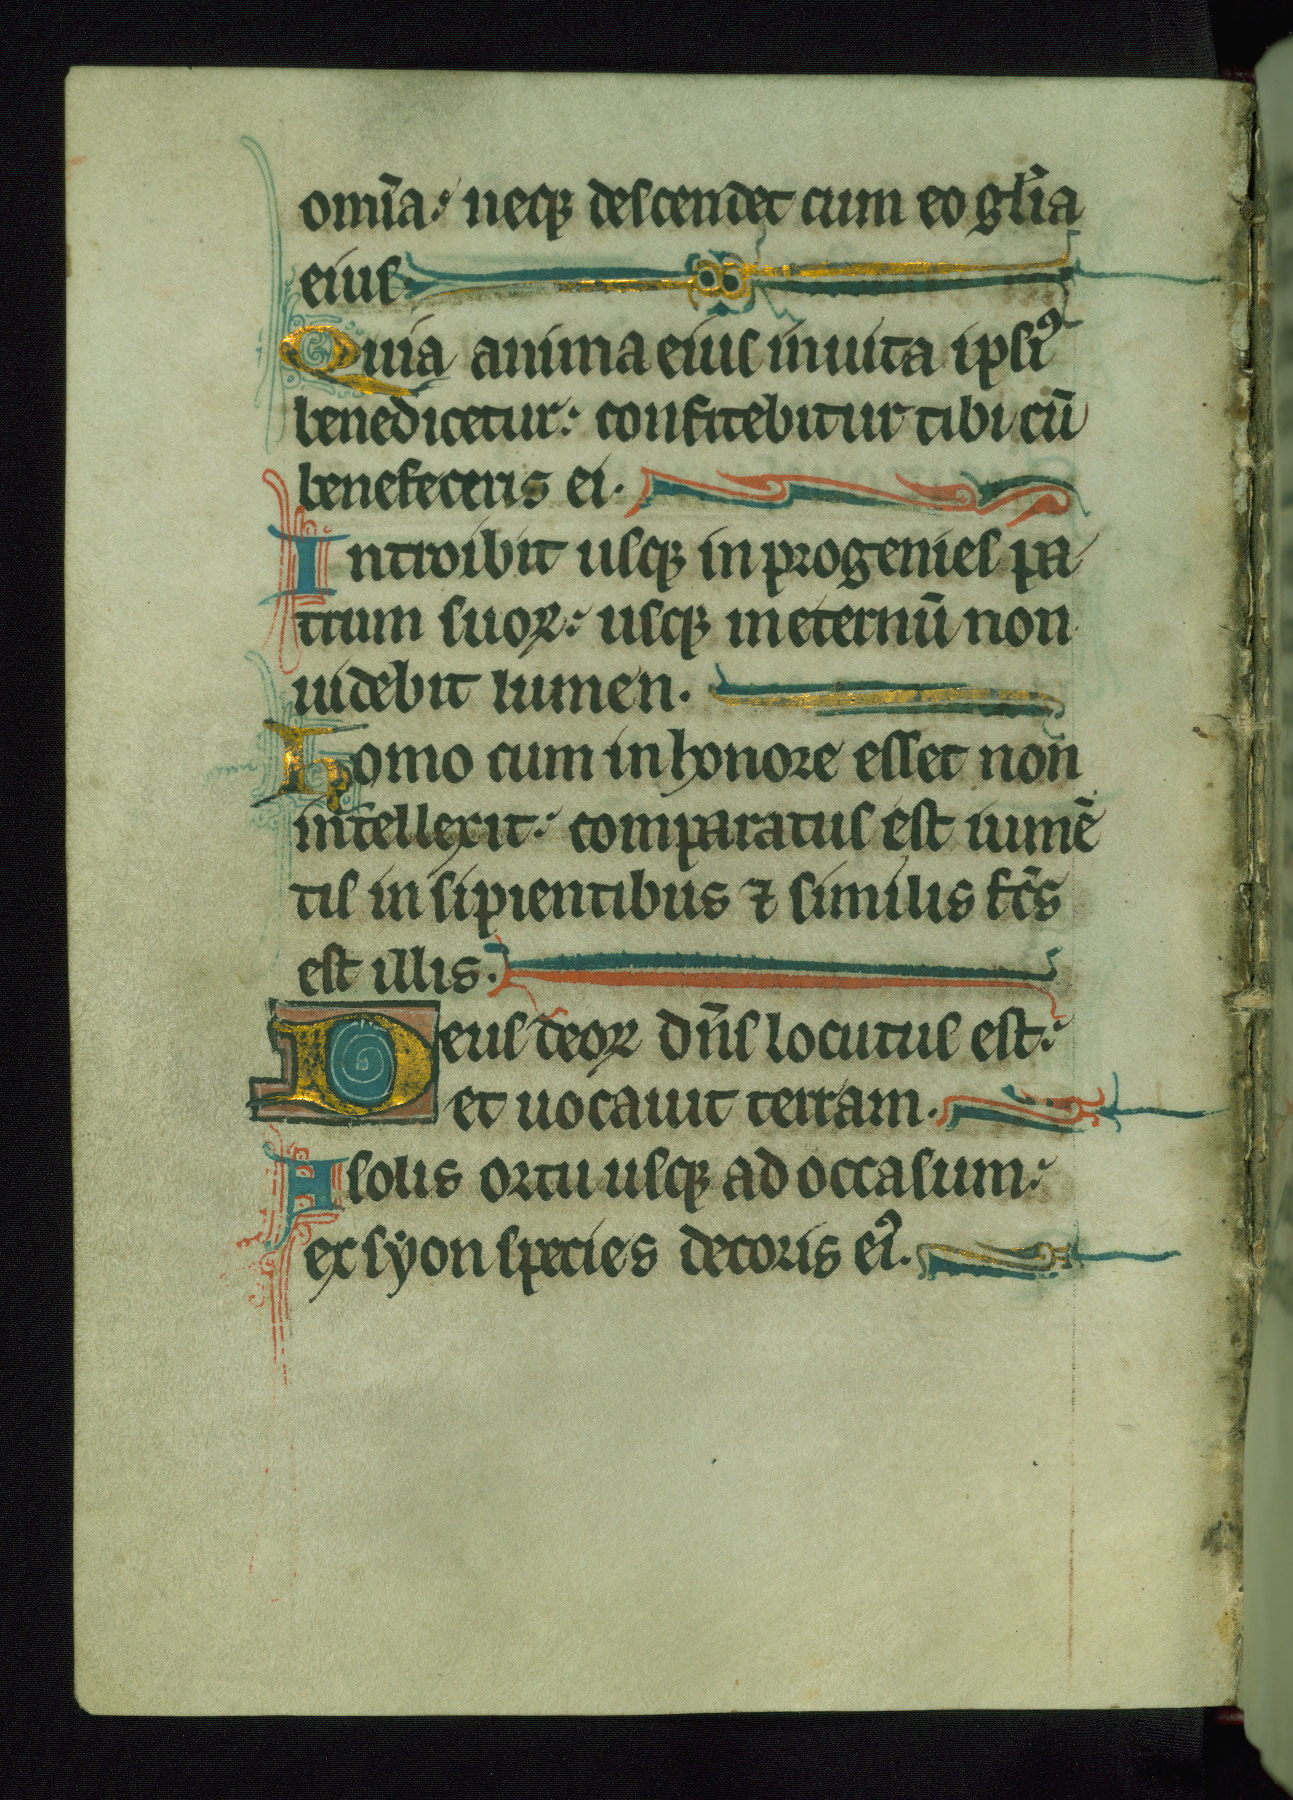 om̅ia: neqꝫ descendet cum eo gl̅ia
eius
Quia anima eius in uita ipsiꝰ
benedicetur: confitebitur tibi cū
benefeceris ei.
Introibit usqꝫ in progenies pa
trum suoꝝ: usqꝫ in eternū non
uidebit lumen.
Homo cum in honore esset non
intellexit: comparatus est iumē
tis insipientibus ⁊ similis fc̅s
est illis.
Deus deoꝝ dn̅s locutus est:
et uocauit terram.
A solis ortu usqꝫ ad occasum:
ex syon species decoris eiꝰ.